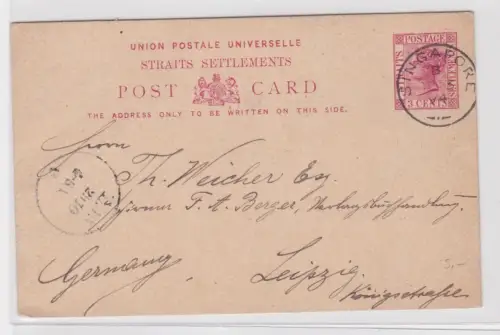 UNION POSTALE UNIVERSELLE
STRAITS SETTLEMENTS
POST CARD
THE ADDRESS ONLY TO BE WRITTEN ON THIS SIDE.
POSTAGE
3 CENTS
SINGAPORE
Herrn
Th. Weicher Esq.
F. A. Berger, Verlagsbuchhandlung.
Germany
Leipzig.
Königstrasse
5,-